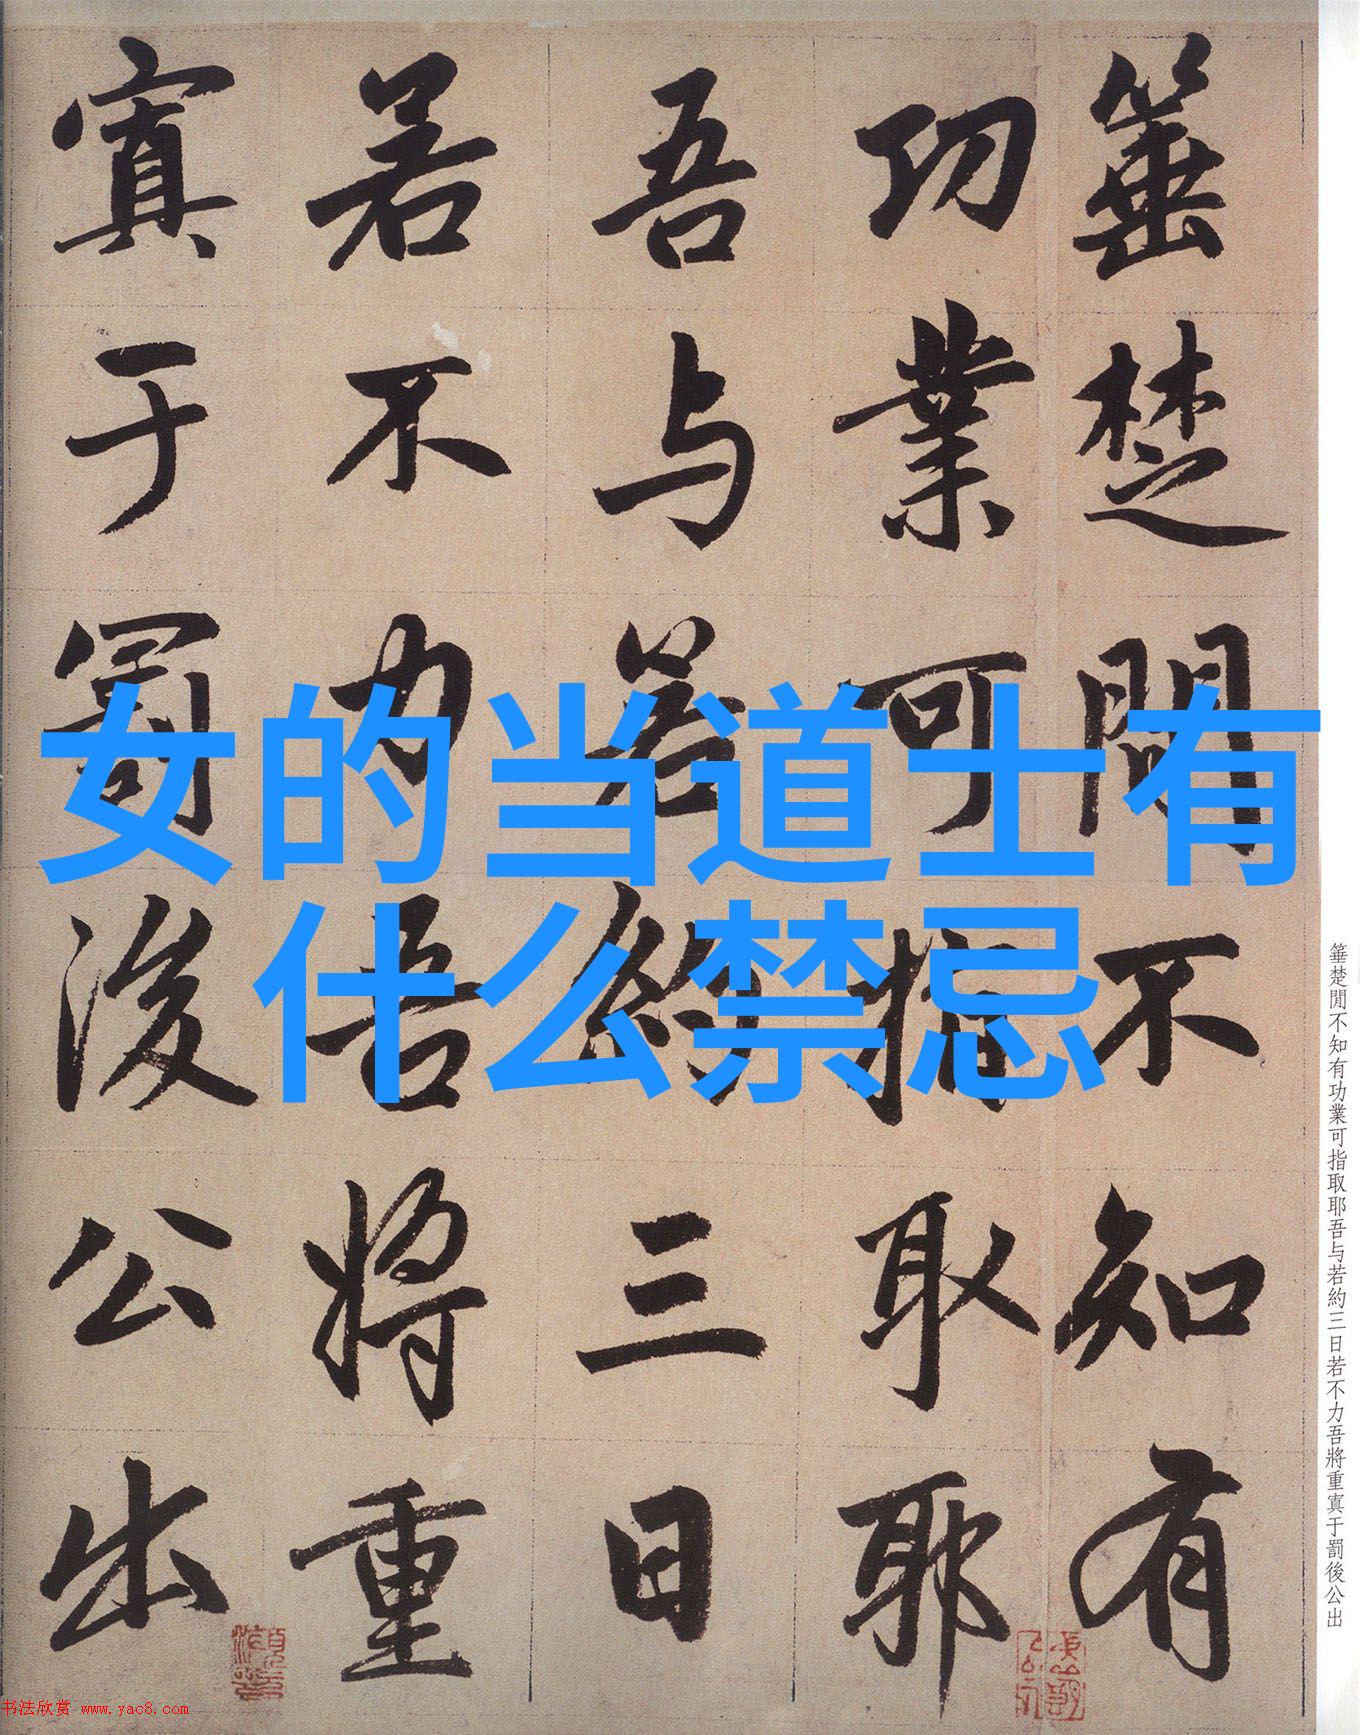 箠楚間不知有
功業可指取耶
吾与若約三日
若不力吾將重
寘于罰後公出
女的当道士有
什么禁忌
箠楚閒不知有功業可指取耶吾与若約三日若不力吾將重寘于罰後公出
书法欣赏 www.yac8.com